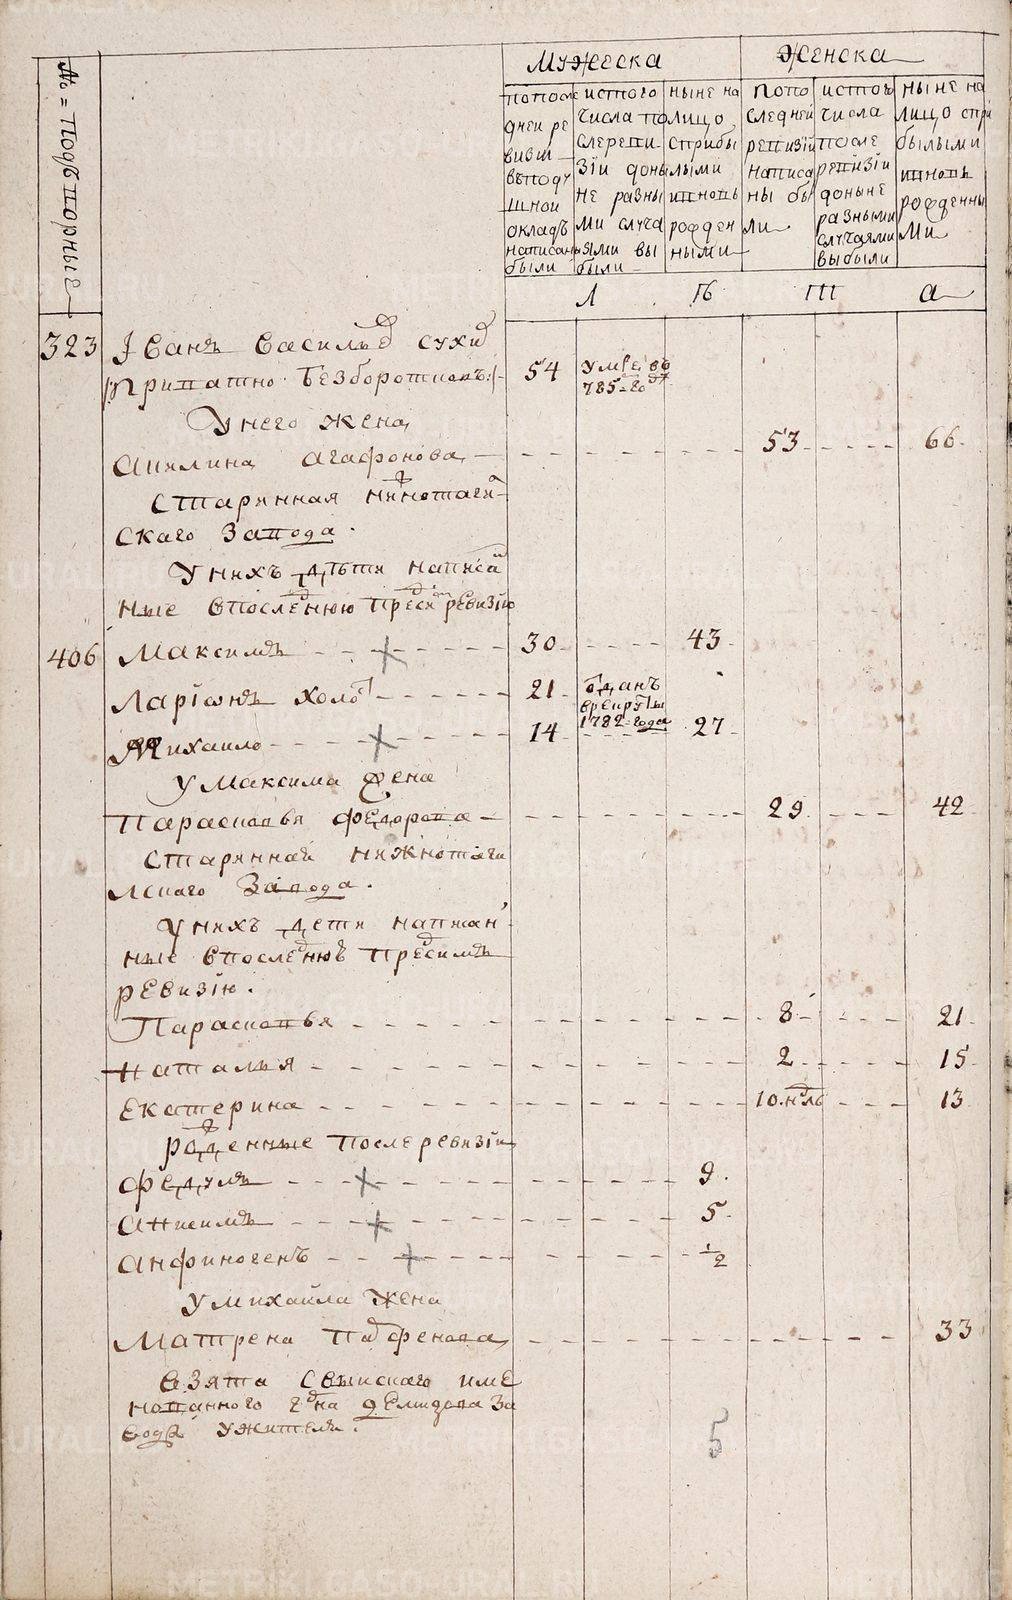 № = Подворныя
Мужеска
Женска
попосле
дней ре
визии
вподу
шной
окладъ
написаны
были
истого
числа по
слереви
зїи доны
не разны
ми случа
ями вы
были
ныне на
лицо
сприбы
лыми
ивновь
рожден
ными
попо
следней
ревизїи
написа
ны бы
ли
истого
числа
после
ревизїи
доныне
разными
случаями
выбыли
ныне на
лицо спри
былыми
ивновь
рожденны
ми
323 Іванъ васильевъ сухихъ
54 умре въ
785-годѣ
Унего жена
Акилина агафонова 53 66
старинная нижнотаги
скаго завода.
Унихъ дѣти написа
ные впоследнюю пред сим ревизїю
406 Максимъ 30 43
Ларїонъ холостъ 21 отданъ
врекруты
1782-года
Михаило 14 27
У Максима жена
Парасковья федорова 29 42
старинная нижнотаги
лскаго завода.
Унихъ дети написан
ные впоследнюю предсимъ
ревизїю.
Парасковья 8 21
наталья 2 15
екатерина 10.ндль 13
рожденные послеревизїи
федулъ 9.
анисимъ 5
анфиногенъ 1/2
У михаила жена
Матрена парфенова 33
взята свыискаго име
нованного гдна демидова за
вода ужителя.
5